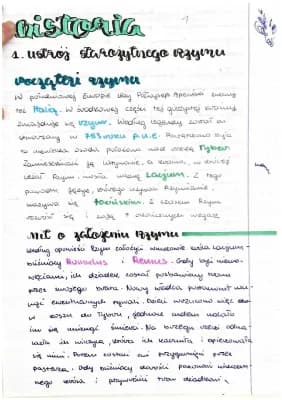 historia
1
1. ustrój starożytnego rzymu
początki rzymu
W południowej Europie leży Półwysep Apeniński zwany
też Italią. W środkowej części tej górzystej krainy
znajduje się Rzym. Według legendy został on
założony w 753 roku p.n.e. Początkowo była
to niewielka osada położona nad rzeką Tybr.
Zamieszkiwali ją Latynowie, a kraina, w której
leżał Rzym, nosiła nazwę Lacjum. Z tego
powodu język, którego używali Rzymianie,
nazywa się łacińskim. Z czasem Rzym
rozwijał się i
mit o założeniu rzymu
według opowieści Rzym założyli wnukowie króla Lacjum -
bliźniacy Romulus i Remus. Gdy byli niemo-
wlętami, ich dziadek został pozbawiony tronu
przez swojego brata. Nowy władca postanowił usu-
nąć ewentualnych rywali. Dzieci wrzucono więc
w koszu do Tybru, jednak cudem udało
im się uniknąć śmierci. Na brzegu rzeki odna-
lazła je wilczyca, która ich karmiła i opiekowała
się nimi. Potem zostali oni przygarnięci przez
pasterza. Gdy bliźniacy dorośli pokonali
króla i przywrócili tron dziadkowi.